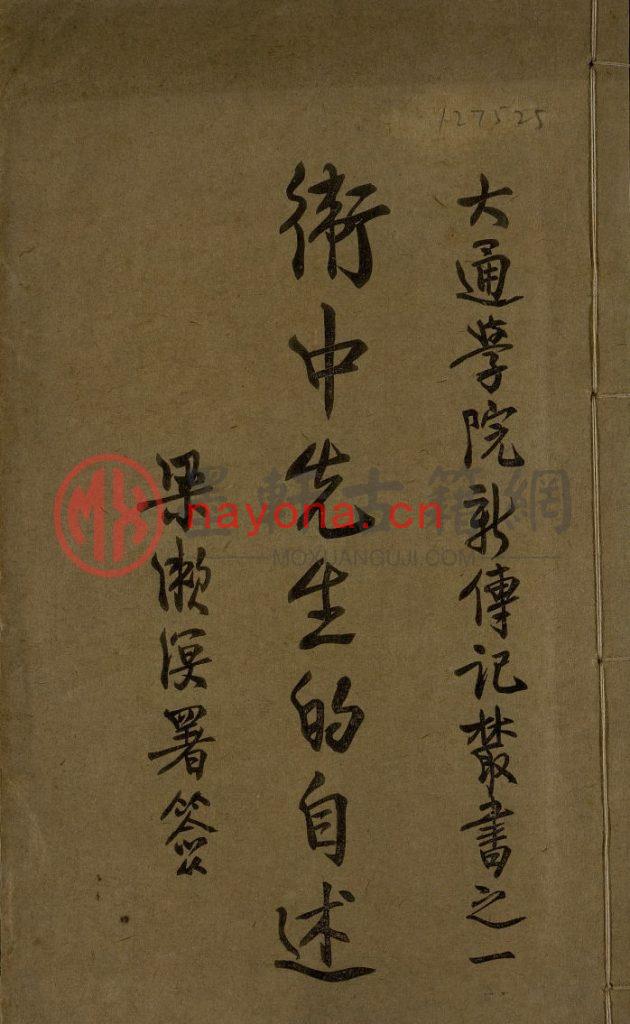 127525
大通學院新傳記叢書之一
衛中先生的自述
梁漱溟署簽
墨軒古籍網
nayona.cn
MOXUANGUJI.COM